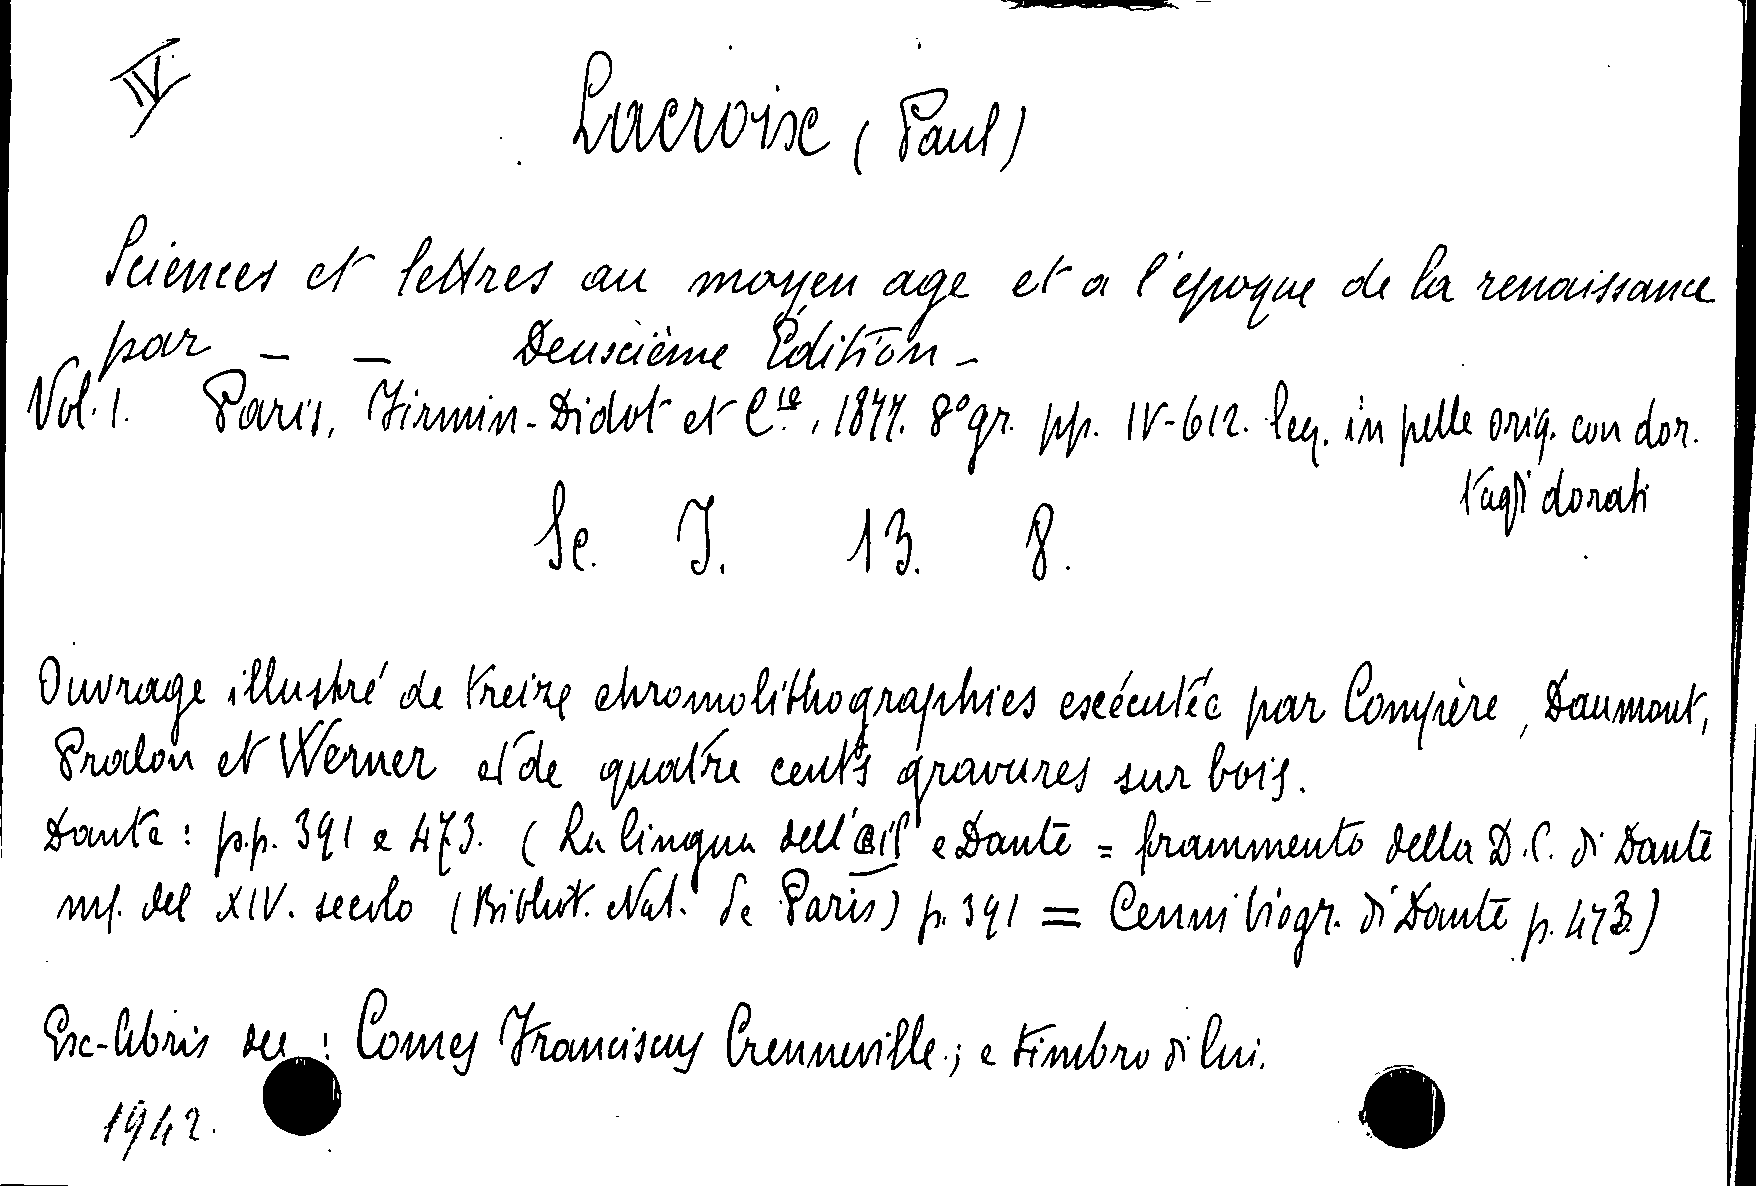 IV
Lacroix (Paul)
Sciences et lettres au moyen age et a l'epoque de la renaissance
par — — Deuxième Édition —
Vol. 1. Paris, Firmin-Didot et Cie, 1877. 8° gr. pp. IV-612. leg. in pelle orig. con dor.
tagli dorati
Sc. I. 13. 8.
Ouvrage illustré de treize chromolithographies exécutée par Compère, Daumont,
Pralon et Werner et de quatre cents gravures sur bois.
Dante: p.p. 391 e 473. (La lingua dell'oil e Dante = frammento della D.C. di Dante
ms. del XIV. secolo (Bibliot. Nat. de Paris) p. 391 = Cenni biogr. di Dante p. 473)
Ex-libris del: Comes Franciscus Crenneville; e timbro di lui.
1942.